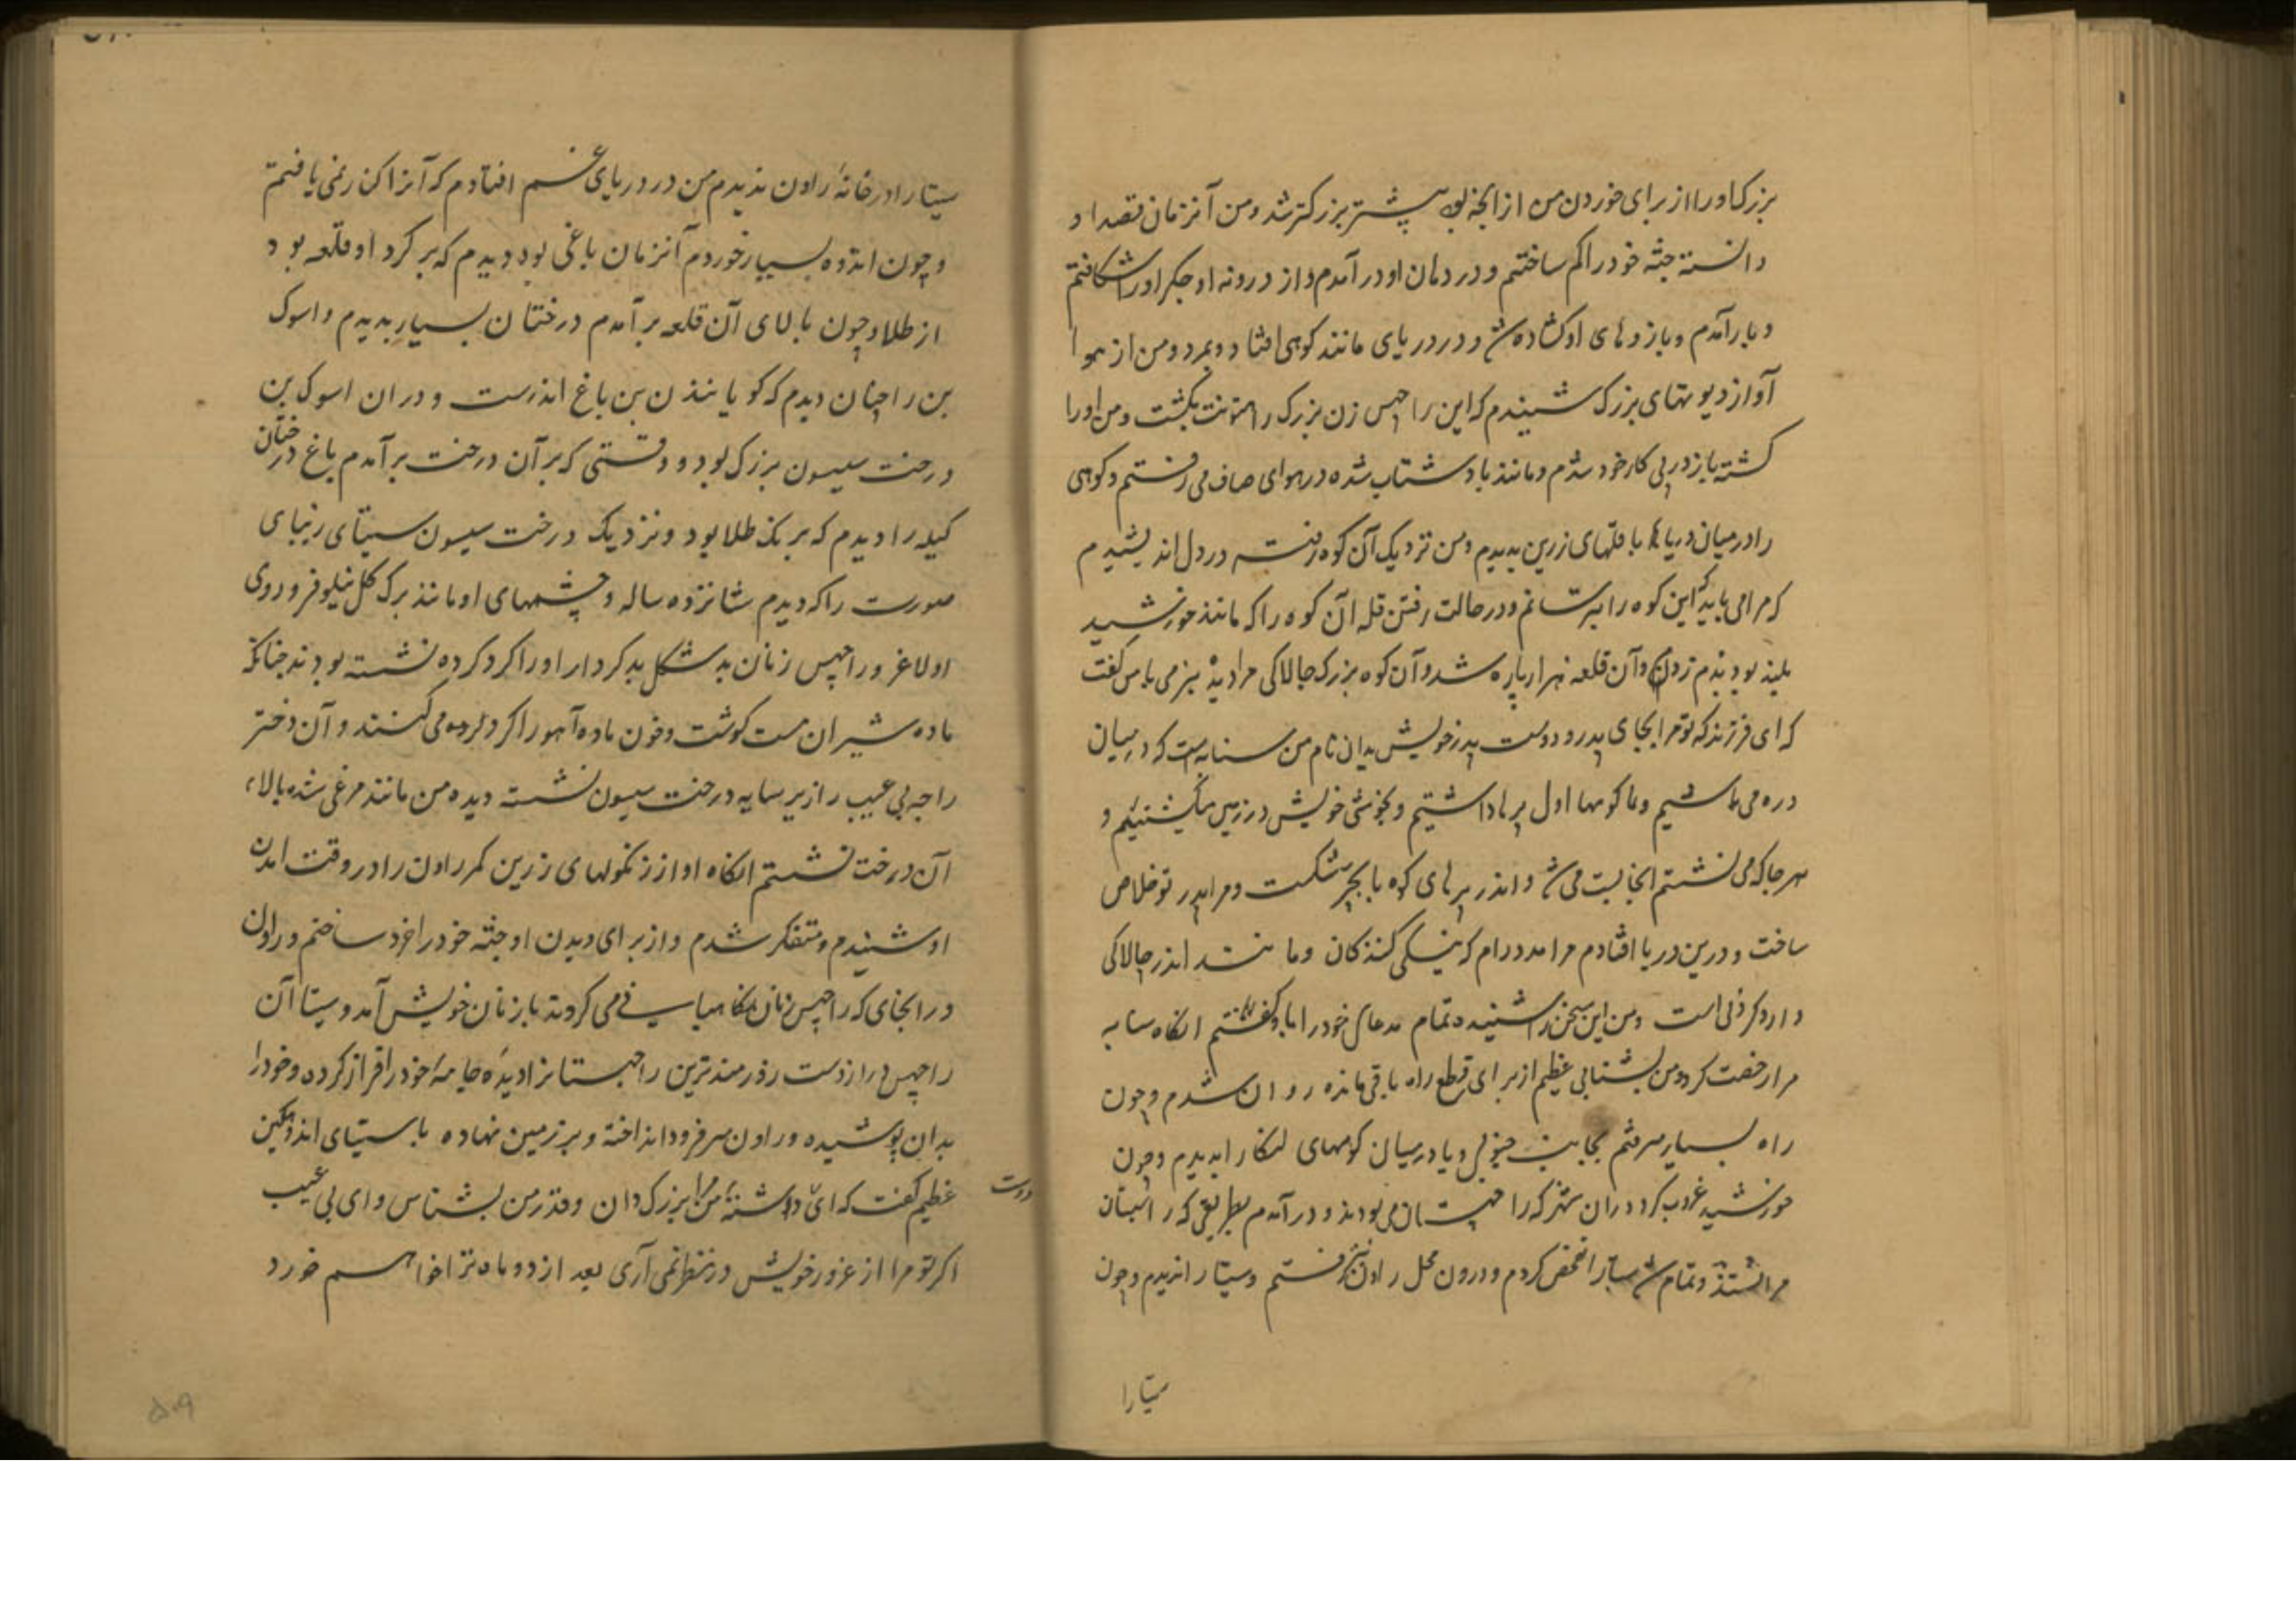 بزرک او را از برای خوردن من از انجه بود پیشتر بزرکتر شد و من آنزمان قصد او
دانسته جثه خود را کم ساختم و در دهان او در آمدم و از درونه او جکر او را شکافتم
و بار آمدم و بازوهای او کشاده شد و در دریای مانند کوهی افتاد و بمرد و من از هوا
آواز دیوتهای بزرک شنیدم که این راچهس زن بزرک را هنونت بکشت و من او را
کشته باز در پی کار خود شدم و مانند باد شتاب شده در هوای صاف می رفتم و کوهی
را در میان دریاها با قلهای زرین بدیدم و من نزدیک آن کوه رفته در دل اندیشیدم
که مرا می باید که این کوه را بترسانم و در حالت رفتن قله آن کوه را که مانند خورشید
بلند بود بدم زدم و آن قلعه هزار پاره شد و آن کوه بزرک چالاکی مرا دیده بنرمی با من کفت
که ای فرزند که تو مرا بجای پدر و دوست پدر خویش بدان نام من سنابه است که در میان
دره می باشیم و ما کوهها اول پرها داشتیم و بخوشی خویش در زمین میکشتیم و
هر جا که می نشستم انجا پست می شد و اندر پرهای کوه با بجر شکست و مرا پدر تو خلاص
ساخت و درین دریا افتادم مرا مدد رام که نیکی کنندکان و مانند اندر چالاکی
دارد کردنی است و من این سخن را شنیده تمام مدعای خود را با او کفتم انکاه سنابه
مرا رخصت کرد و من بشتابی عظیم از برای قطع راه باقی مانده روان شدم و چون
راه بسیار رفتم بجانب جنوبی دریا در میان کوههای لنکا را بدیدم و چون
خورشید غروب کرد در آن شهر که راچهسان می بودند در آمدم بطریقی که راچهسان
مرا ندانستند و تمام شب سیتا را تفحص کردم و درون محل راون نیز رفتم و سیتا را ندیدم و چون
سیتا را
سیتا را در خانهٔ راون ندیدم من در دریای غم افتادم که آنرا کناره نمی یافتم
و چون اندوه بسیار خوردم آنزمان باغی بود دیدم که بر کرد او قلعه بود
از طلا و چون بالای آن قلعه بر آمدم درختان بسیار بدیدم و اسوک
بن را چنان دیدم که کویا نندن بن باغ اندرست و در ان اسوک بن
درخت سیسون بزرک بود و وقتی که بر آن درخت بر آمدم باغ درختان
کیله را دیدم که برنک طلا بود و نزدیک درخت سیسون سیتای زیبای
صورت را که دیدم شانزده ساله و چشمهای او مانند برک کل نیلوفر و روی
او لاغر و راچهس زنان بد شکل بد کردار او را کرد کرده نشسته بودند چنانکه
ماده شیران مست کوشت و خون ماده آهو را کرد کرده می کنند و آن دختر
راجه بی عیب را زیر سایه درخت سیسون نشسته دیده من مانند مرغی شده بالاء
آن درخت نشستم انکاه آواز زنکولهای زرین کمر راون را در وقت آمدن
او شنیدم و متفکر شدم و از برای دیدن او جثه خود را خرد ساختم و راون
در انجای که راچهس زنان نکاهبانی می کردند با زنان خویش آمد و سیتا آن
راچهس دراز دست زورمندترین راچهسانرا دیده جامهٔ خود را فراز کرده و خود را
بدان پوشیده و راون سر فرود انداخته و بر زمین نهاده با سیتای اندوهکین
عظیم کفت که ای داشتهٔ من مرا بزرک دان و قدر من بشناس و ای بی عیب
دوست
اکر تو مرا از غرور خویش در نظر نمی آری بعد از دو ماه ترا خواهم خورد
۵۰۹